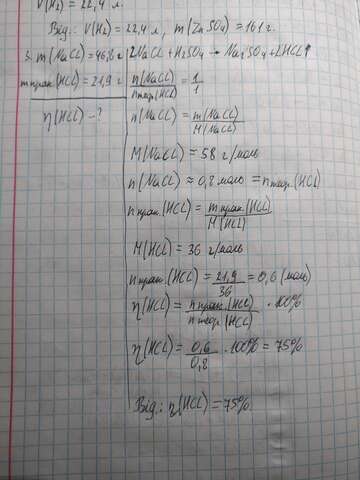 V(H₂) = 22,4 л.
Від.: V(H₂) = 22,4 л, m(ZnSO₄) = 161 г.
3. m(NaCl) = 46,8 г | 2NaCl + H₂SO₄ → Na₂SO₄ + 2HCl↑
m прак.(HCl) = 21,9 г | n(NaCl)/n теор.(HCl) = 1/1
η(HCl) - ? | n(NaCl) = m(NaCl)/M(NaCl)
M(NaCl) = 58 г/моль
n(NaCl) ≈ 0,8 моль = n теор.(HCl)
n прак.(HCl) = m прак.(HCl)/M(HCl)
M(HCl) = 36 г/моль
n прак.(HCl) = 21,9/36 = 0,6 (моль)
η(HCl) = n прак.(HCl)/n теор.(HCl) · 100%
η(HCl) = 0,6/0,8 · 100% = 75%
Від.: η(HCl) = 75%